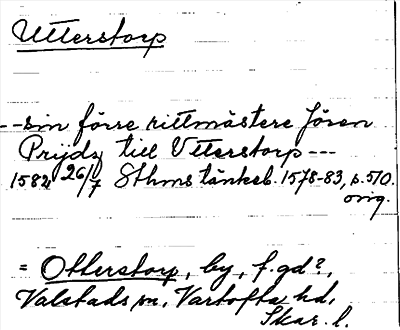 Utterstorp
--sin förre rittmästere Jören
Prijdz till Vtterstorp---
1582 26/7 Sthms tänkeb. 1578-83, s.510.
orig.
= Otterstorp, by, f.gd?,
Valstads sn, Vartofta hd,
Skar. l.